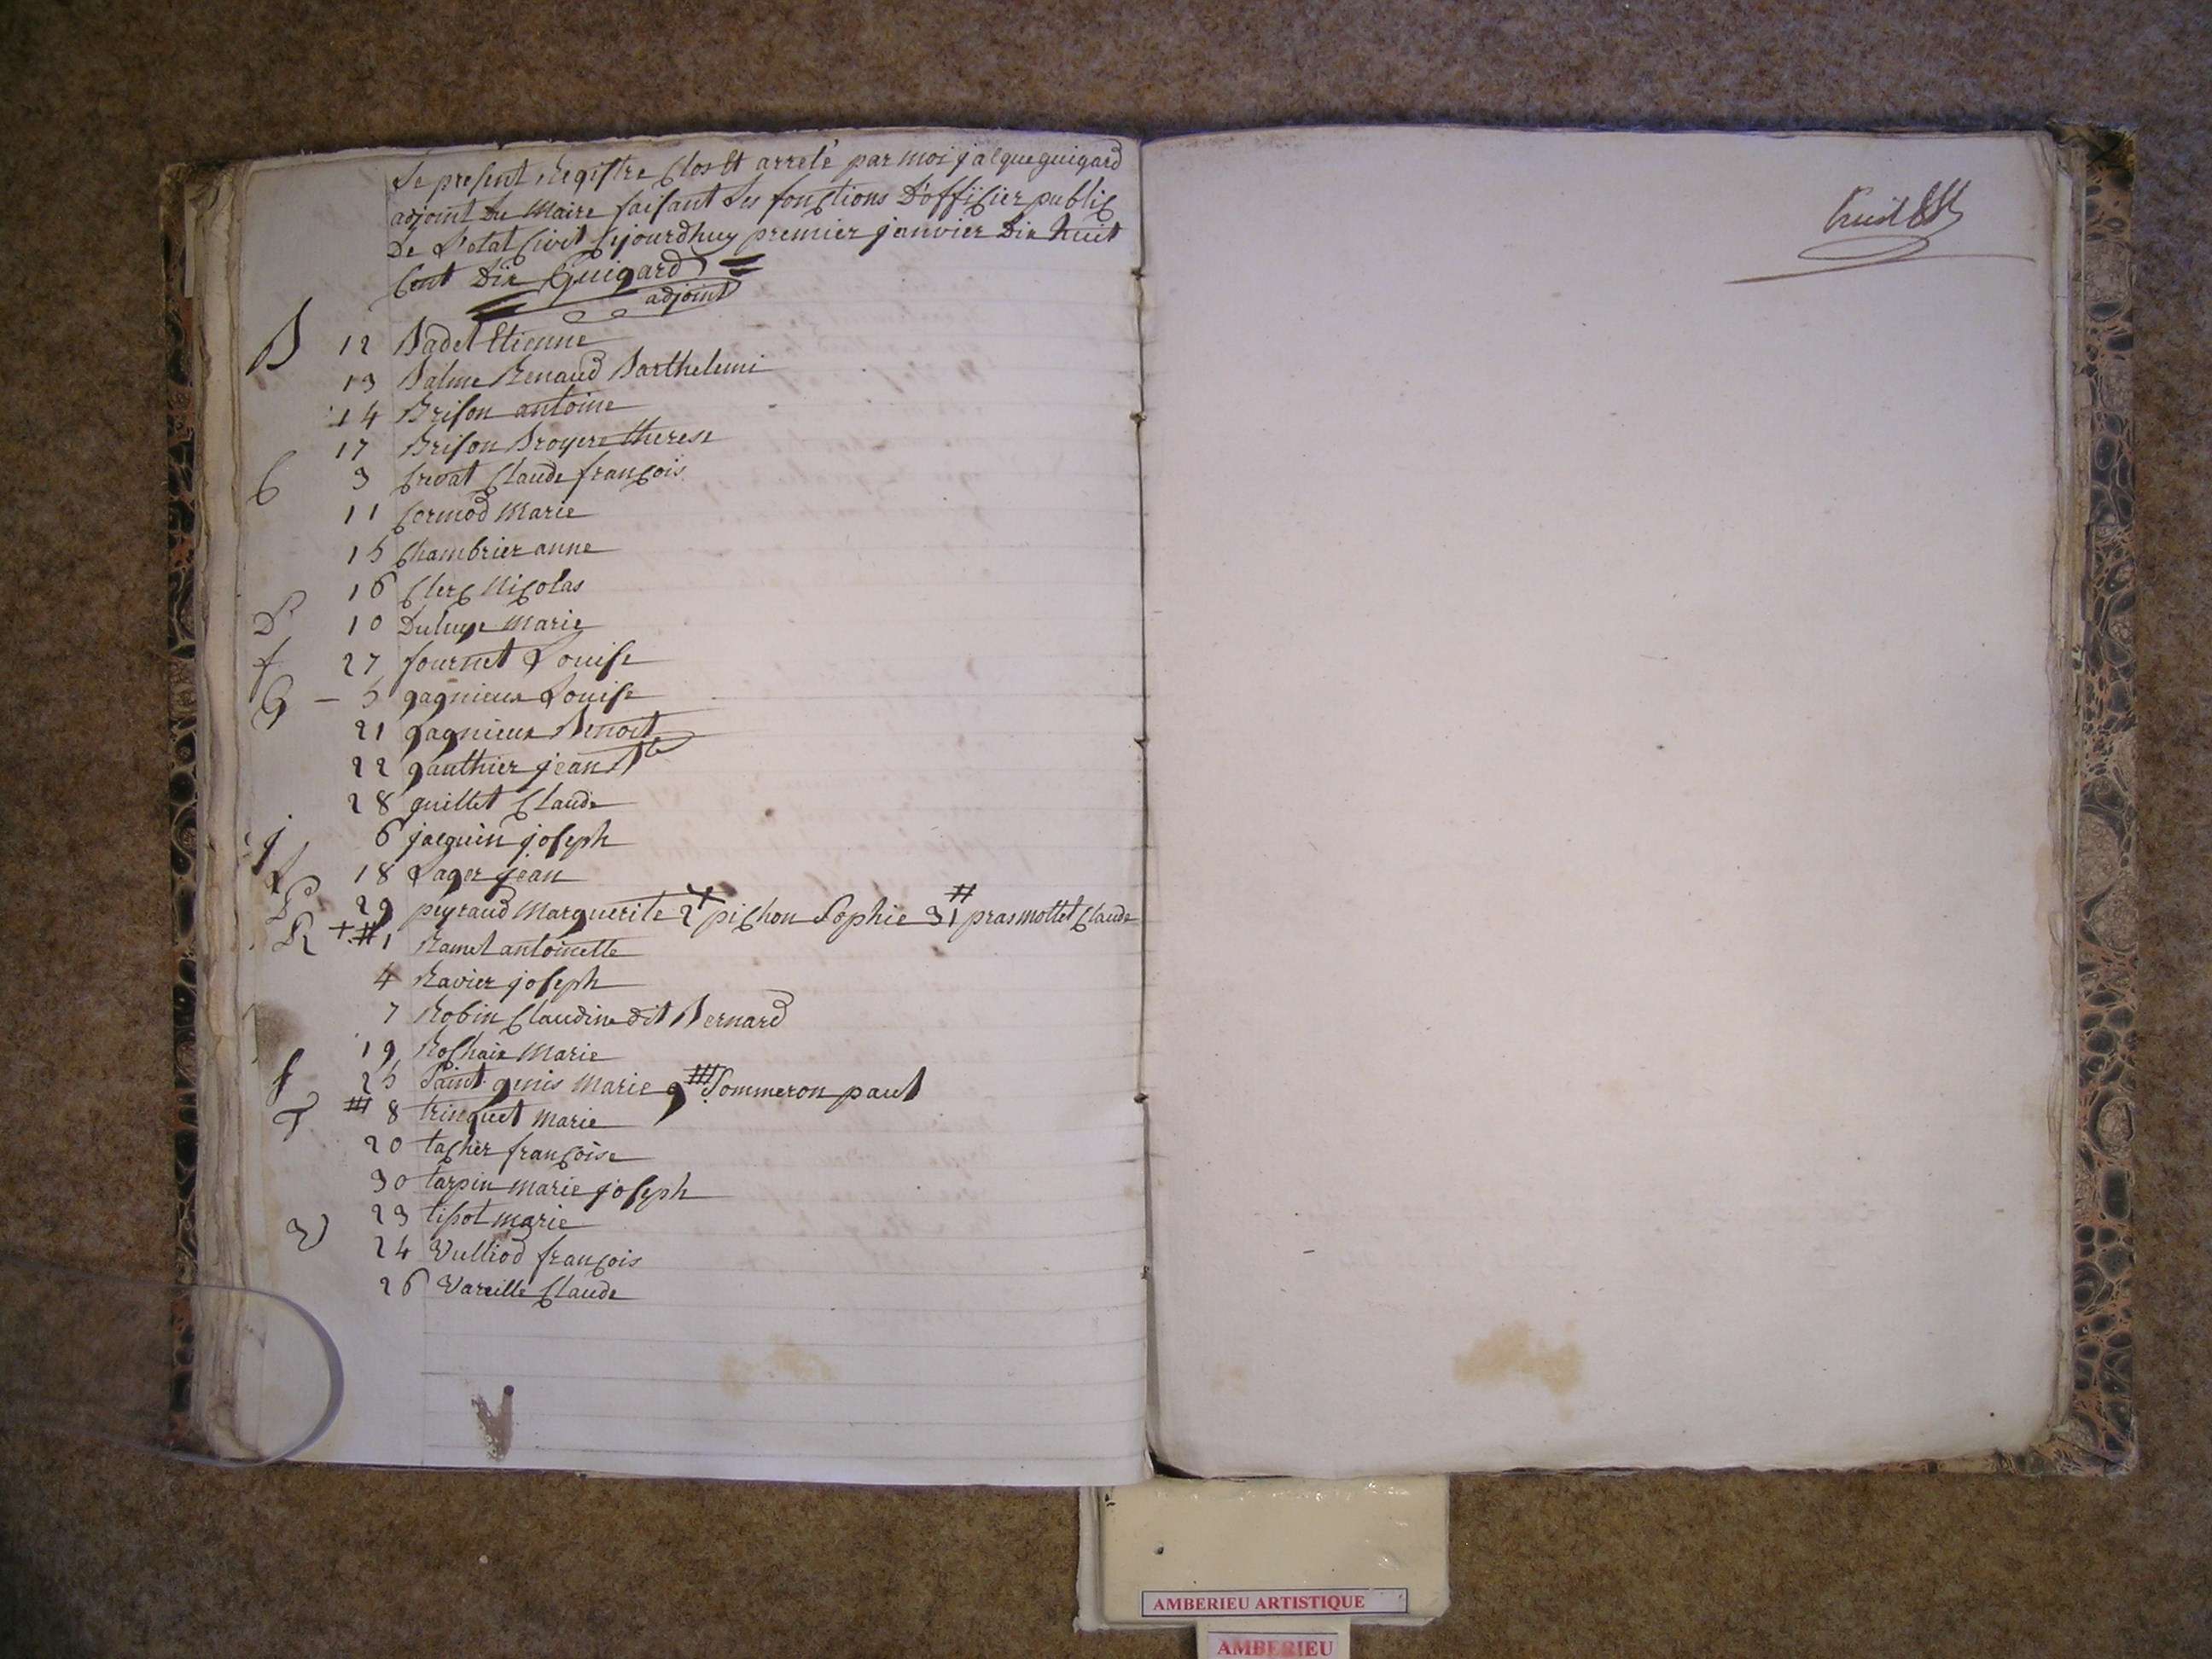 Le present Registre Clos Et arreté par moi jacque guigard
adjoint Du Maire faisant Les fonctions D'officier public
De L'etat Civil Cejourdhuy premier janvier Dix huit
Cent Dix Guigard
adjoint
B 12 Badel Etienne
13 Balme Renaud Barthelemi
14 Brison antoine
17 Brison Broyere therese
C 3 Crevat Claude françois
11 Cormod Marie
15 Chambrier anne
16 Clerc Nicolas
D 10 Marie
f 27 fournet Louise
G - 5 gagnieux Louise
21 gagnieux Benoit
22 gauthier jean Bte
28 guillet Claude
j 6 jacquin joseph
L 18 Lager jean
P 29 peyraud Marguerite 2 + pichon Sophie 31 # prasmottet Claude
R +# 1 Ramel antoinette
4 Ravier joseph
7 Robin Claudine dit Bernard
19 Rochaix Marie
S 25 Saint genis Marie 9 # Sommeron paul
T # 8 trinquet Marie
20 tacher françoise
30 tarpin marie joseph
23 tissot marie
V 24 Vulliod françois
26 Vareille Claude
AMBERIEU ARTISTIQUE
AMBERIEU